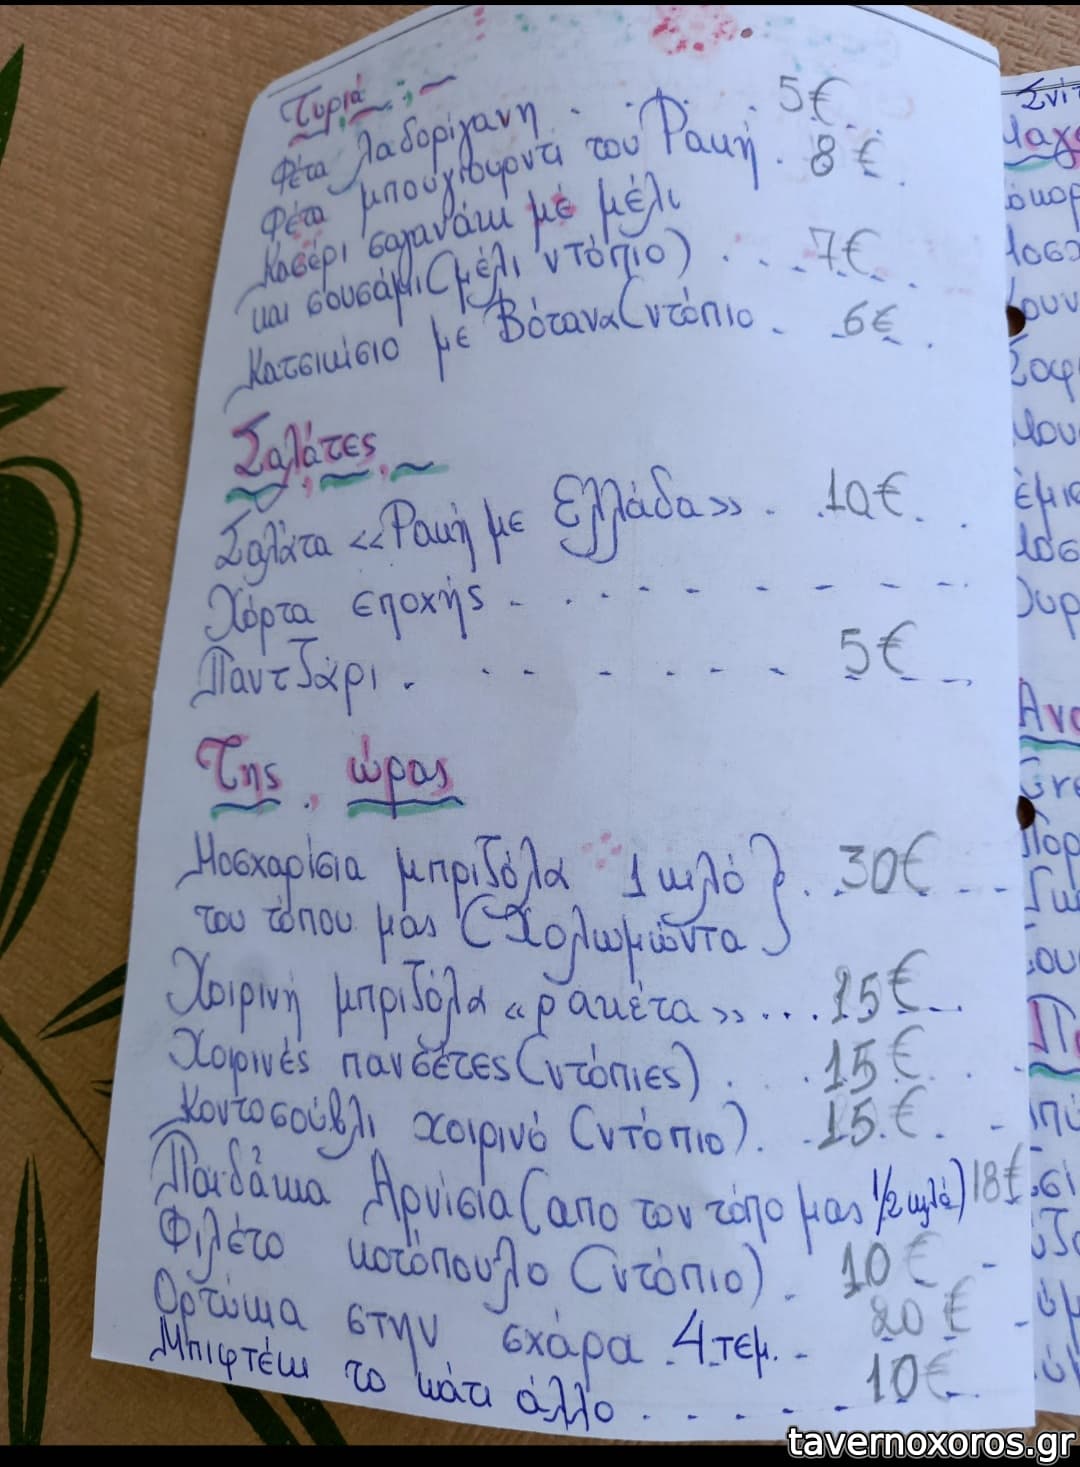 Τυριά
Φέτα λαδορίγανη . . . 5€
Φέτα μπουγιουρντί του Ρακή . 8€
Κασέρι σαγανάκι με μέλι
και σουσάμι (μέλι ντόπιο) . . . 7€
Κατσικίσιο με Βότανα (ντόπιο . 6€
Σαλάτες
Σαλάτα «Ρακή με Ελλάδα» . . 10€
Χόρτα εποχής
Παντζάρι . 5€
Της ώρας
Μοσχαρίσια μπριζόλα 1 κιλό } . 30€
του τόπου μας (Χολωμώντα
Χοιρινή μπριζόλα «ρακέτα» ... 15€
Χοιρινές πανσέτες (ντόπιες) . . 15€
Κοντοσούβλι χοιρινό (ντόπιο) . 15€
Παϊδάκια Αρνίσια (απο τον τόπο μας 1/2 κιλό) 18€
Φιλέτο κοτόπουλο (ντόπιο) . 10€
Ορτύκια στην σχάρα 4 τεμ. 20€
Μπιφτέκι το κάτι άλλο . . . . . 10€
tavernoxoros.gr